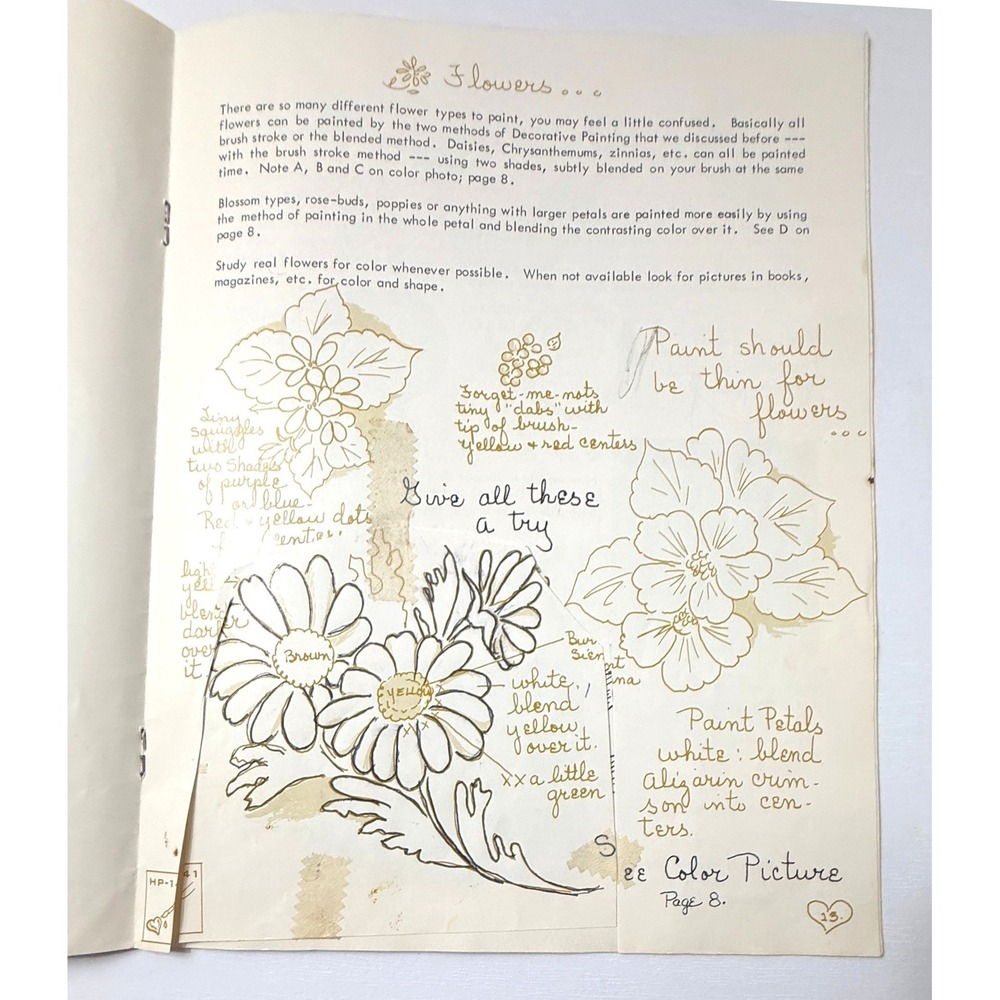 Flowers...
There are so many different flower types to paint, you may feel a little confused. Basically all
flowers can be painted by the two methods of Decorative Painting that we discussed before ---
brush stroke or the blended method. Daisies, Chrysanthemums, zinnias, etc. can all be painted
with the brush stroke method --- using two shades, subtly blended on your brush at the same
time. Note A, B and C on color photo; page 8.
Blossom types, rose-buds, poppies or anything with larger petals are painted more easily by using
the method of painting in the whole petal and blending the contrasting color over it. See D on
page 8.
Study real flowers for color whenever possible. When not available look for pictures in books,
magazines, etc. for color and shape.
Paint should
be thin for
flowers
...
Forget-me-nots
tiny "dabs" with
tip of brush-
yellow + red centers
Tiny
squiggles
with
two shades
of purple
or blue-
Red yellow dots
Give all these
a try
yell
blend
darker
over
it.
Brown
YELLOW
xx
Burnt
Sienna
white,
blend
yellow
over it.
xx a little
green
Paint Petals
white: blend
alizarin crim-
son into cen-
ters.
See Color Picture
Page 8.
HP-1 41
13.